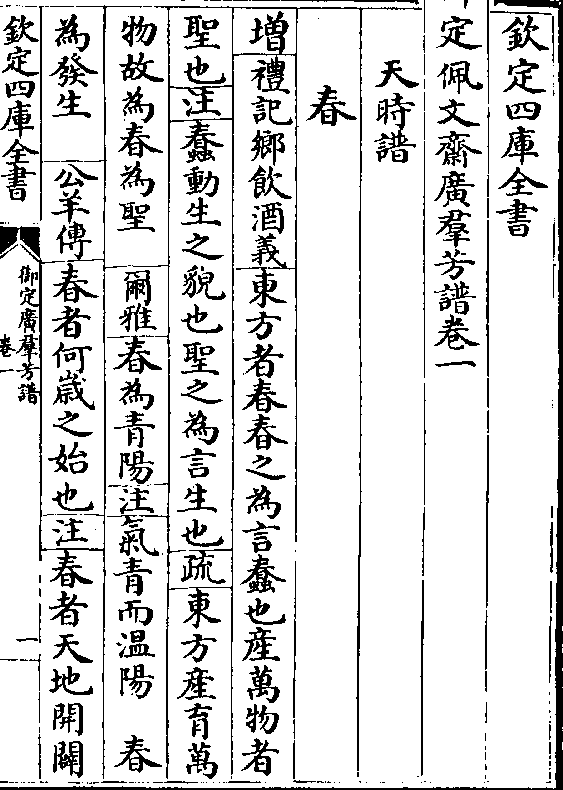 欽定四庫全書
定佩文齋廣羣芳譜卷一
天時譜
春
增禮記鄉飲酒義東方者春春之為言蠢也産萬物者
聖也注蠢動生之貌也聖之為言生也疏東方産育萬
物故為春為聖 爾雅春為青陽注氣青而温陽 春
為發生 公羊傳春者何歲之始也注春者天地開闢
欽定四庫全書
御定廣羣芳譜
卷一
一